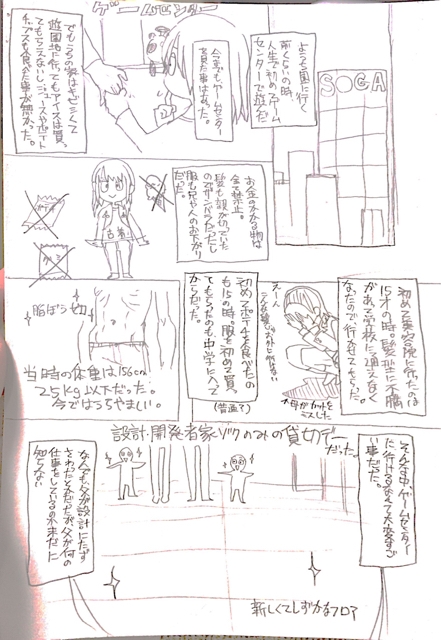 ようち園に行く
前くらいの時、
人生で初めてゲーム
センターで遊んだ
SOGA
今までもゲームセンター
で遊んだ事はなかった。
でもうちの家はキビしくて
遊園地に行ってもアイスは買っ
てもらえないしジュースやポテト
チップスも食べた事が無かった。
お金のかかる物は
全て禁止。
髪も親が切っていた
のでザンバラだったし
服も兄や人のお下がり
だった。
初めて美容院に行ったのは
15才の時。
があって学校に通えなく
なったので行かせてもらった。
えーん
初めてポテチを食べたの
も15の時、服を初めて買っ
てもらったのも中学に入って
からだった。
(普通?)
脂ぼう 切
当時の体重は156cm
25kg以下だった。
今ではうらやましい。
そんな中、ゲームセンター
に行けるなんて大変すご
い事だった。
設計・開発者家ゾクのみの貸切デー
だった。
なんでも父が設計にたず
さわったそうだが、父が何の
仕事をしているのか未だに
知らない
新しくてしずかなフロア